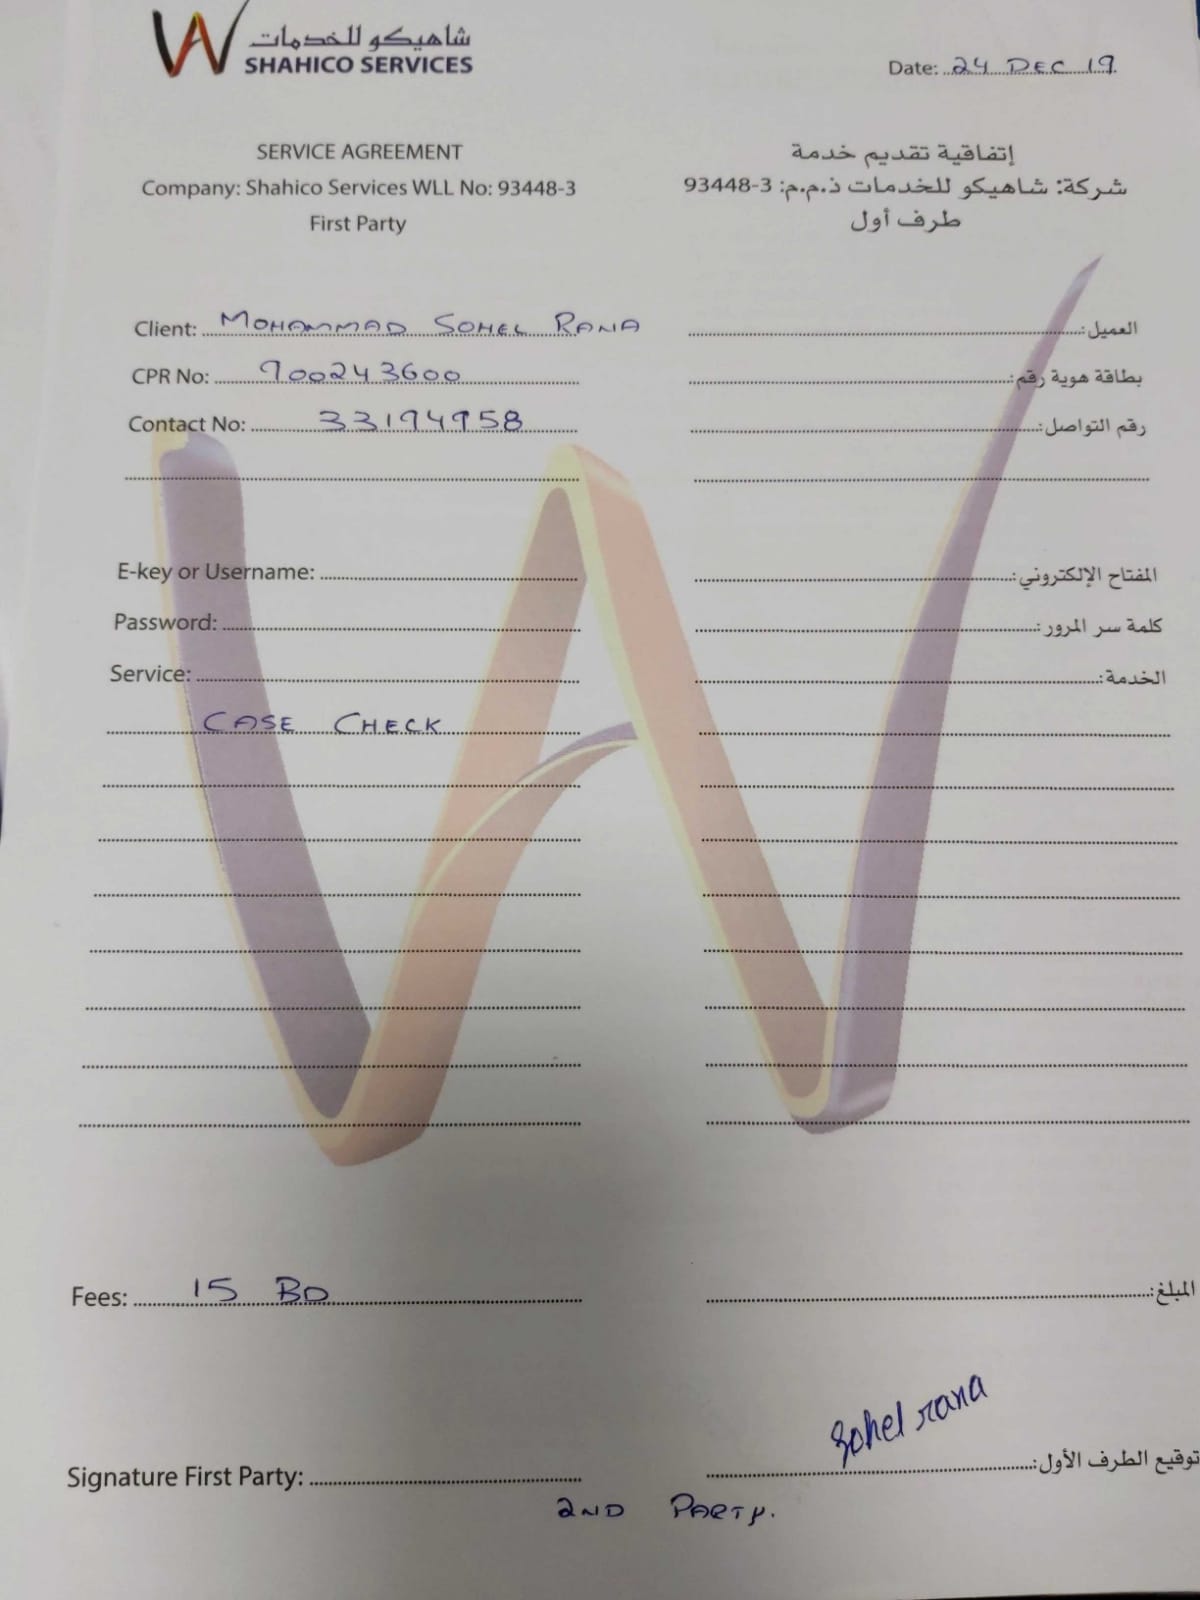 شاهيكو للخدمات
SHAHICO SERVICES
Date: 24 DEC 19
SERVICE AGREEMENT
Company: Shahico Services WLL No: 93448-3
First Party
إتفاقية تقديم خدمة
شركة: شاهيكو للخدمات ذ.م.م: 3-93448
طرف أول
Client: MOHAMMAD SOHEL RANA
العميل:
CPR No: 900243600
بطاقة هوية رقم:
Contact No: 33194958
رقم التواصل:
E-key or Username:
المفتاح الإلكتروني:
Password:
كلمة سر المرور:
Service:
الخدمة:
CASE CHECK
Fees: 15 BD
المبلغ:
Sohel rana
Signature First Party:
توقيع الطرف الأول:
2ND PARTY.